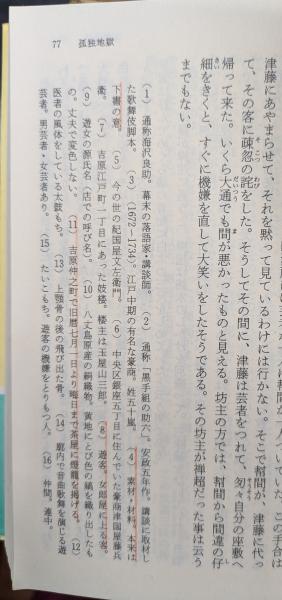 77 孤独地獄
この手合は
津藤にあやまらせて、それを黙って見ているわけには行かない。そこで幇間が、津藤に代っ
て、その客に疎忽の詫をした。そうしてその間に、津藤は芸者をつれて、匆々自分の座敷へ
帰って来た。いくら大通でも間が悪かったものと見える。坊主の方では、幇間から間違の仔
細をきくと、すぐに機嫌を直して大笑いをしたそうである。その坊主が禅超だった事は云う
までもない。
(1) 通称海沢良助。幕末の落語家・講談師。 (2) 通称「黒手組の助六」。安政五年作。講談に取材し
た歌舞伎脚本。 (3) (1672-1734)。江戸中期の有名な豪商。姓五十嵐。 (4) 素材・材料。本来は
下書の意。 (5) 今の世の紀国屋文左衛門。 (6) 中央区銀座五丁目に住んでいた豪商津国屋藤兵
衛。 (7) 吉原江戸町一丁目にあった妓楼。楼主は玉屋山三郎。 (8) 遊客。女郎屋に上る客。
(9) 遊女の源氏名(店での呼び名)。 (10) 八丈島原産の絹織物。黄地にとび色の縞を織り出したも
の。丈夫で変色しない。 (11) 吉原仲之町で旧暦七月一日より晦日まで茶屋に燈籠を掲げる。 (12)
医者の風体をしている太鼓もち。 (13) 上顎骨の後の飛び出た骨。 (14) 廓内で音曲歌舞を演じる遊
芸者。男芸者・女芸者あり。 (15) たいこもち。遊客の機嫌をとりもつ人。 (16) 仲間。連中。